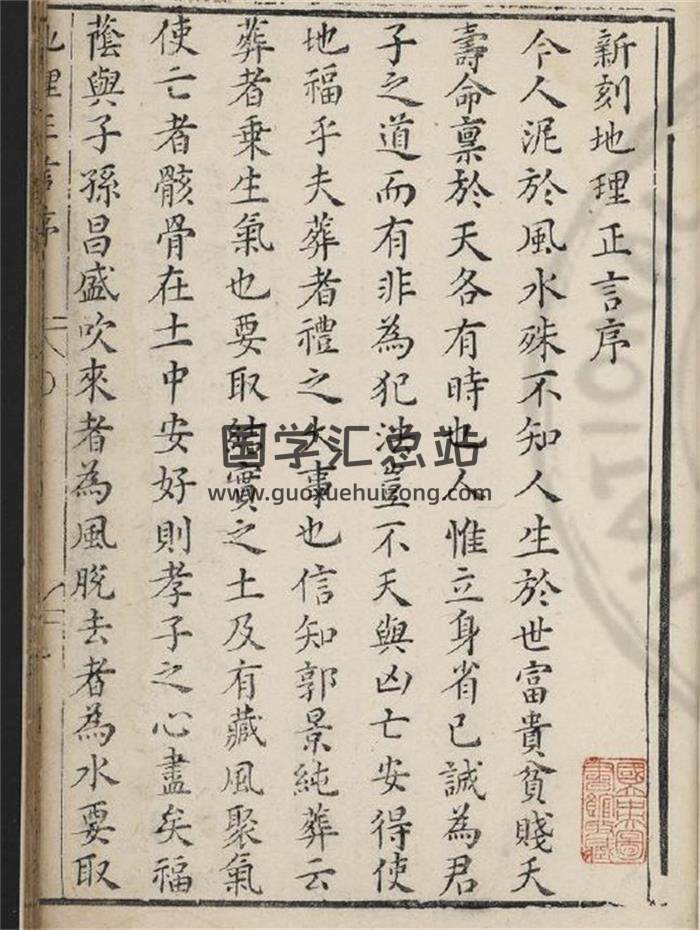 新刻地理正言序
今人泥於風水殊不知人生於世富貴貧賤夭
壽命禀於天各有時也人惟立身省己誠為君
子之道而有非為犯法豈不天與凶亡安得使
地福乎夫葬者禮之大事也信知郭景純葬云
葬者乗生氣也要取結實之土及有藏風聚氣
使亡者骸骨在土中安好則孝子之心盡矣福
蔭與子孫昌盛吹來者為風脫去者為水要取
地理正言序
国学汇总站
www.guoxuehuizong.com